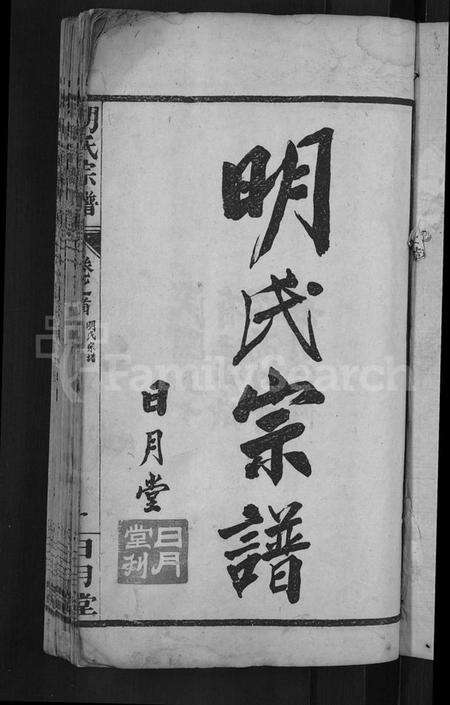 明氏宗譜
日月堂
日月
堂刊
明氏宗譜
卷之首
明氏宗譜
一
日月堂
FamilySearch